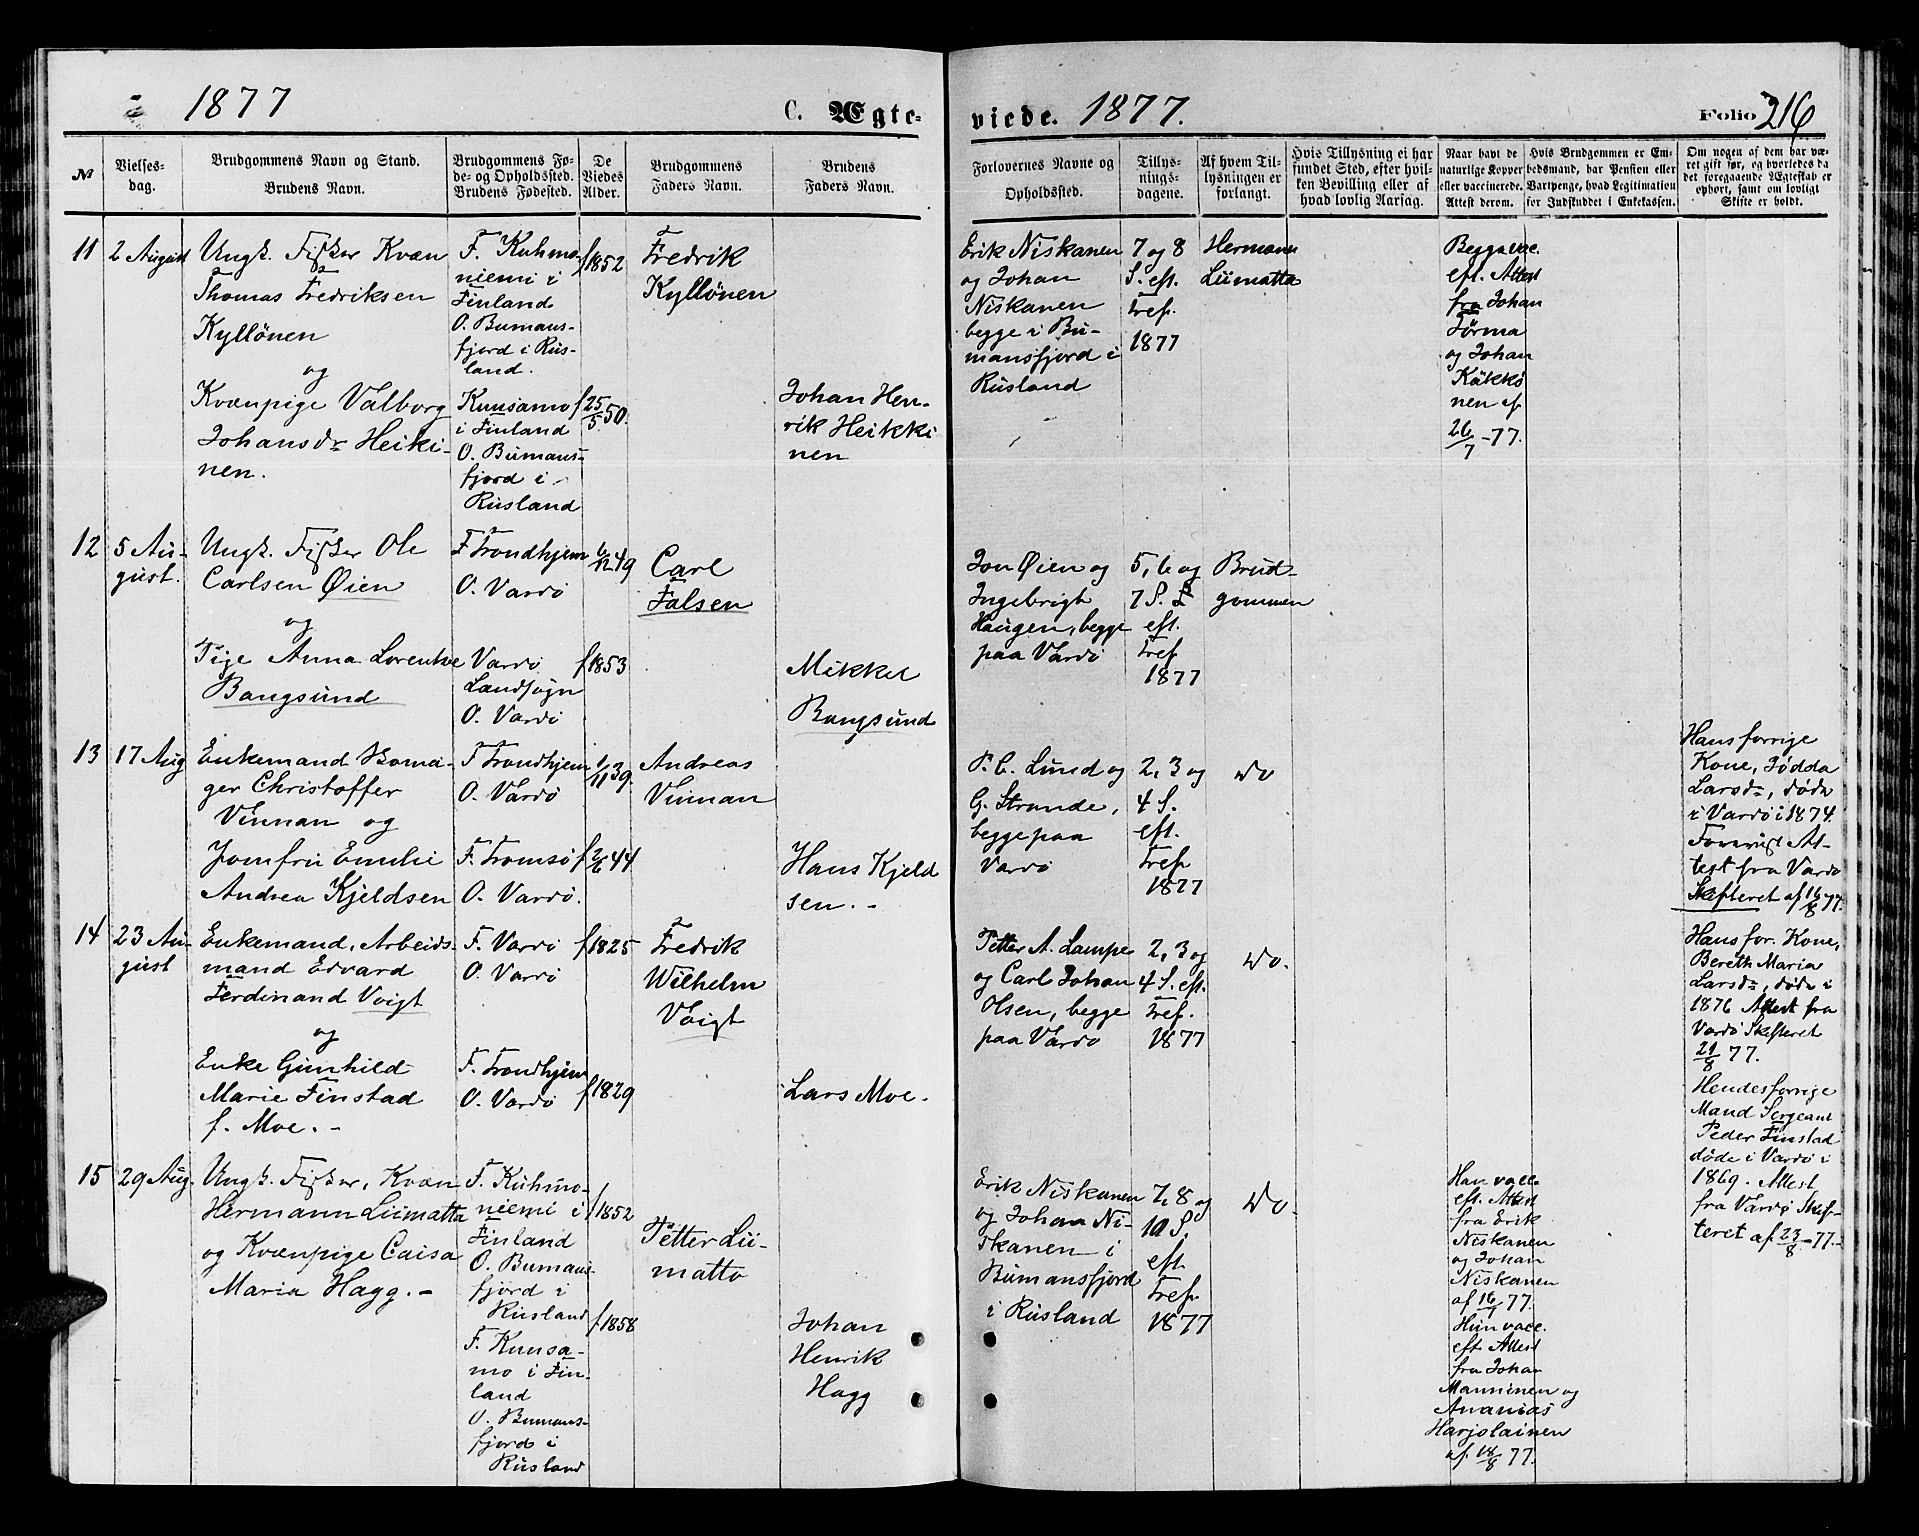 1877
C. Ægte-
viede. 1877.
Folio 216
№
Vielses-
dag.
Brudgommens Navn og Stand.
Brudens Navn.
Brudgommens Fø-
de- og Opholdssted.
Brudens Fødested.
De
Viedes
Alder.
Brudgommens
Faders Navn.
Brudens
Faders Navn.
Forlovernes Navne og
Opholdssted.
Tillys-
nings-
dagene.
Af hvem Til-
lysningen er
forlangt.
Hvis Tillysning ei har
fundet Sted, efter hvil-
ken Bevilling eller af
hvad lovlig Aarsag.
Naar havt de
naturlige Kopper
eller vaccinerede.
Attest derom.
Hvis Brudgommen er Em-
bedsmand, har Pension eller
Vartpenge, hvad Legitimation
for Indskuddet i Enkekassen.
Om nogen af dem har væ-
ret gift før, og hvorledes da
det foregaaende Ægteskab er
ophørt, samt om lovligt
Skifte er holdt.
11
2 August
Ungk. Fisker Kvæn
Thomas Fredriksen
Kyllönen
og
Kvænpige Valborg
Johansdr Heiki-
nen.
F. Kuhmo-
niemi i
Finland
O. Bumans-
fjord i Rus-
land.
Kuusamo
i Finland
O. Bumans-
fjord i
Rusland
f 1852
f 25/5 50.
Fredrik
Kyllönen
Johan Hen-
rik Heikki
nen
Erik Niskanen
og Johan
Niskanen
begge i Bu-
mansfjord i
Rusland
7 og 8
S. eft.
Tref.
1877
Hermann
Liimatta
Begge vac.
eft. Attest
fra Johan
Törma
og Johan
Käkkö
nen af
26/7 -77.
12
5 Au-
gust.
Ungk. Fisker Ole
Carlsen Øien
og
Pige Anna Lorentze
Bangsund
F Trondhjem
O. Vardö
Vardö
Landsogn
O. Vardö
6/12 49
f 1853
Carl
Falsen
Mikkel
Bangsund
Jon Øien og
Ingebrigt
Haugen, begge
paa Vardö
5, 6 og
7 S.
eft.
Tref
1877
Brud-
gommen
13
17 Aug
Enkemand Skoma-
ger Christoffer
Vinnan og
Jomfru Emilie
Andrea Kjeldsen
F Trondhjem
O. Vardö
F. Tromsö
O. Vardö.
1/11 39.
f 2/6 44
Andreas
Vinnan
Hans Kjeld
sen. -
P. C. Lund og
G. Strande,
begge paa
Vardö
2, 3 og
4 S.
eft.
Tref
1877
Do
Hans forrige
Kone, Jødda
Larsdr, døde
i Vardö i 1874.
Forevist At-
test fra Vardö
Skifteret af 16/8 77.
14
23 Au-
gust
Enkemand, Arbeids-
mand Edvard
Ferdinand Voigt
og
Enke Gunhild
Marie Finstad
f. Moe. -
F. Vardö
O. Vardö
F. Trondhjem
O. Vardö
f 1825
f 1829
Fredrik
Wilhelm
Voigt
Lars Moe.
Petter A. Lampe
og Carl Johan
Olsen, begge
paa Vardö
2, 3 og
4 S. eft.
Tref.
1877
Do.
Hans for. Kone,
Bereth Maria
Larsdr, døde i
1876 Attest fra
Vardö Skifteret
21/8 77.
Hendes forrige
Mand Sergeant
Peder Finstad
døde i Vardö i
1869. Attest
fra Vardö Skif-
teret af 23/8 -77.-
15
29 Aug.
Ungk. Fisker, Kvæn
Hermann Liimatta
og Kvænpige Caisa
Maria Hagg. -
F. Kuhmo-
niemi i
Finland
O. Bumans-
fjord i
Rusland
F. Kuusa-
mo i Fin-
land
O. Bumans-
fjord i
Rusland
f 1852
f 1858
Petter Lii-
matta
Johan
Henrik
Hagg
Erik Niskanen
og Johan Ni-
skanen i
Bumansfjord
i Rusland
7, 8 og
10 S.
eft.
Tref
1877
Do.
Han vacc.
eft. Attest
fra Erik
Niskanen
og Johan
Niskanen
af 16/7 77.
Hun vacc.
eft. Attest
fra Johan
Manninen og
Ananias
Harjolainen
af 18/8 77.